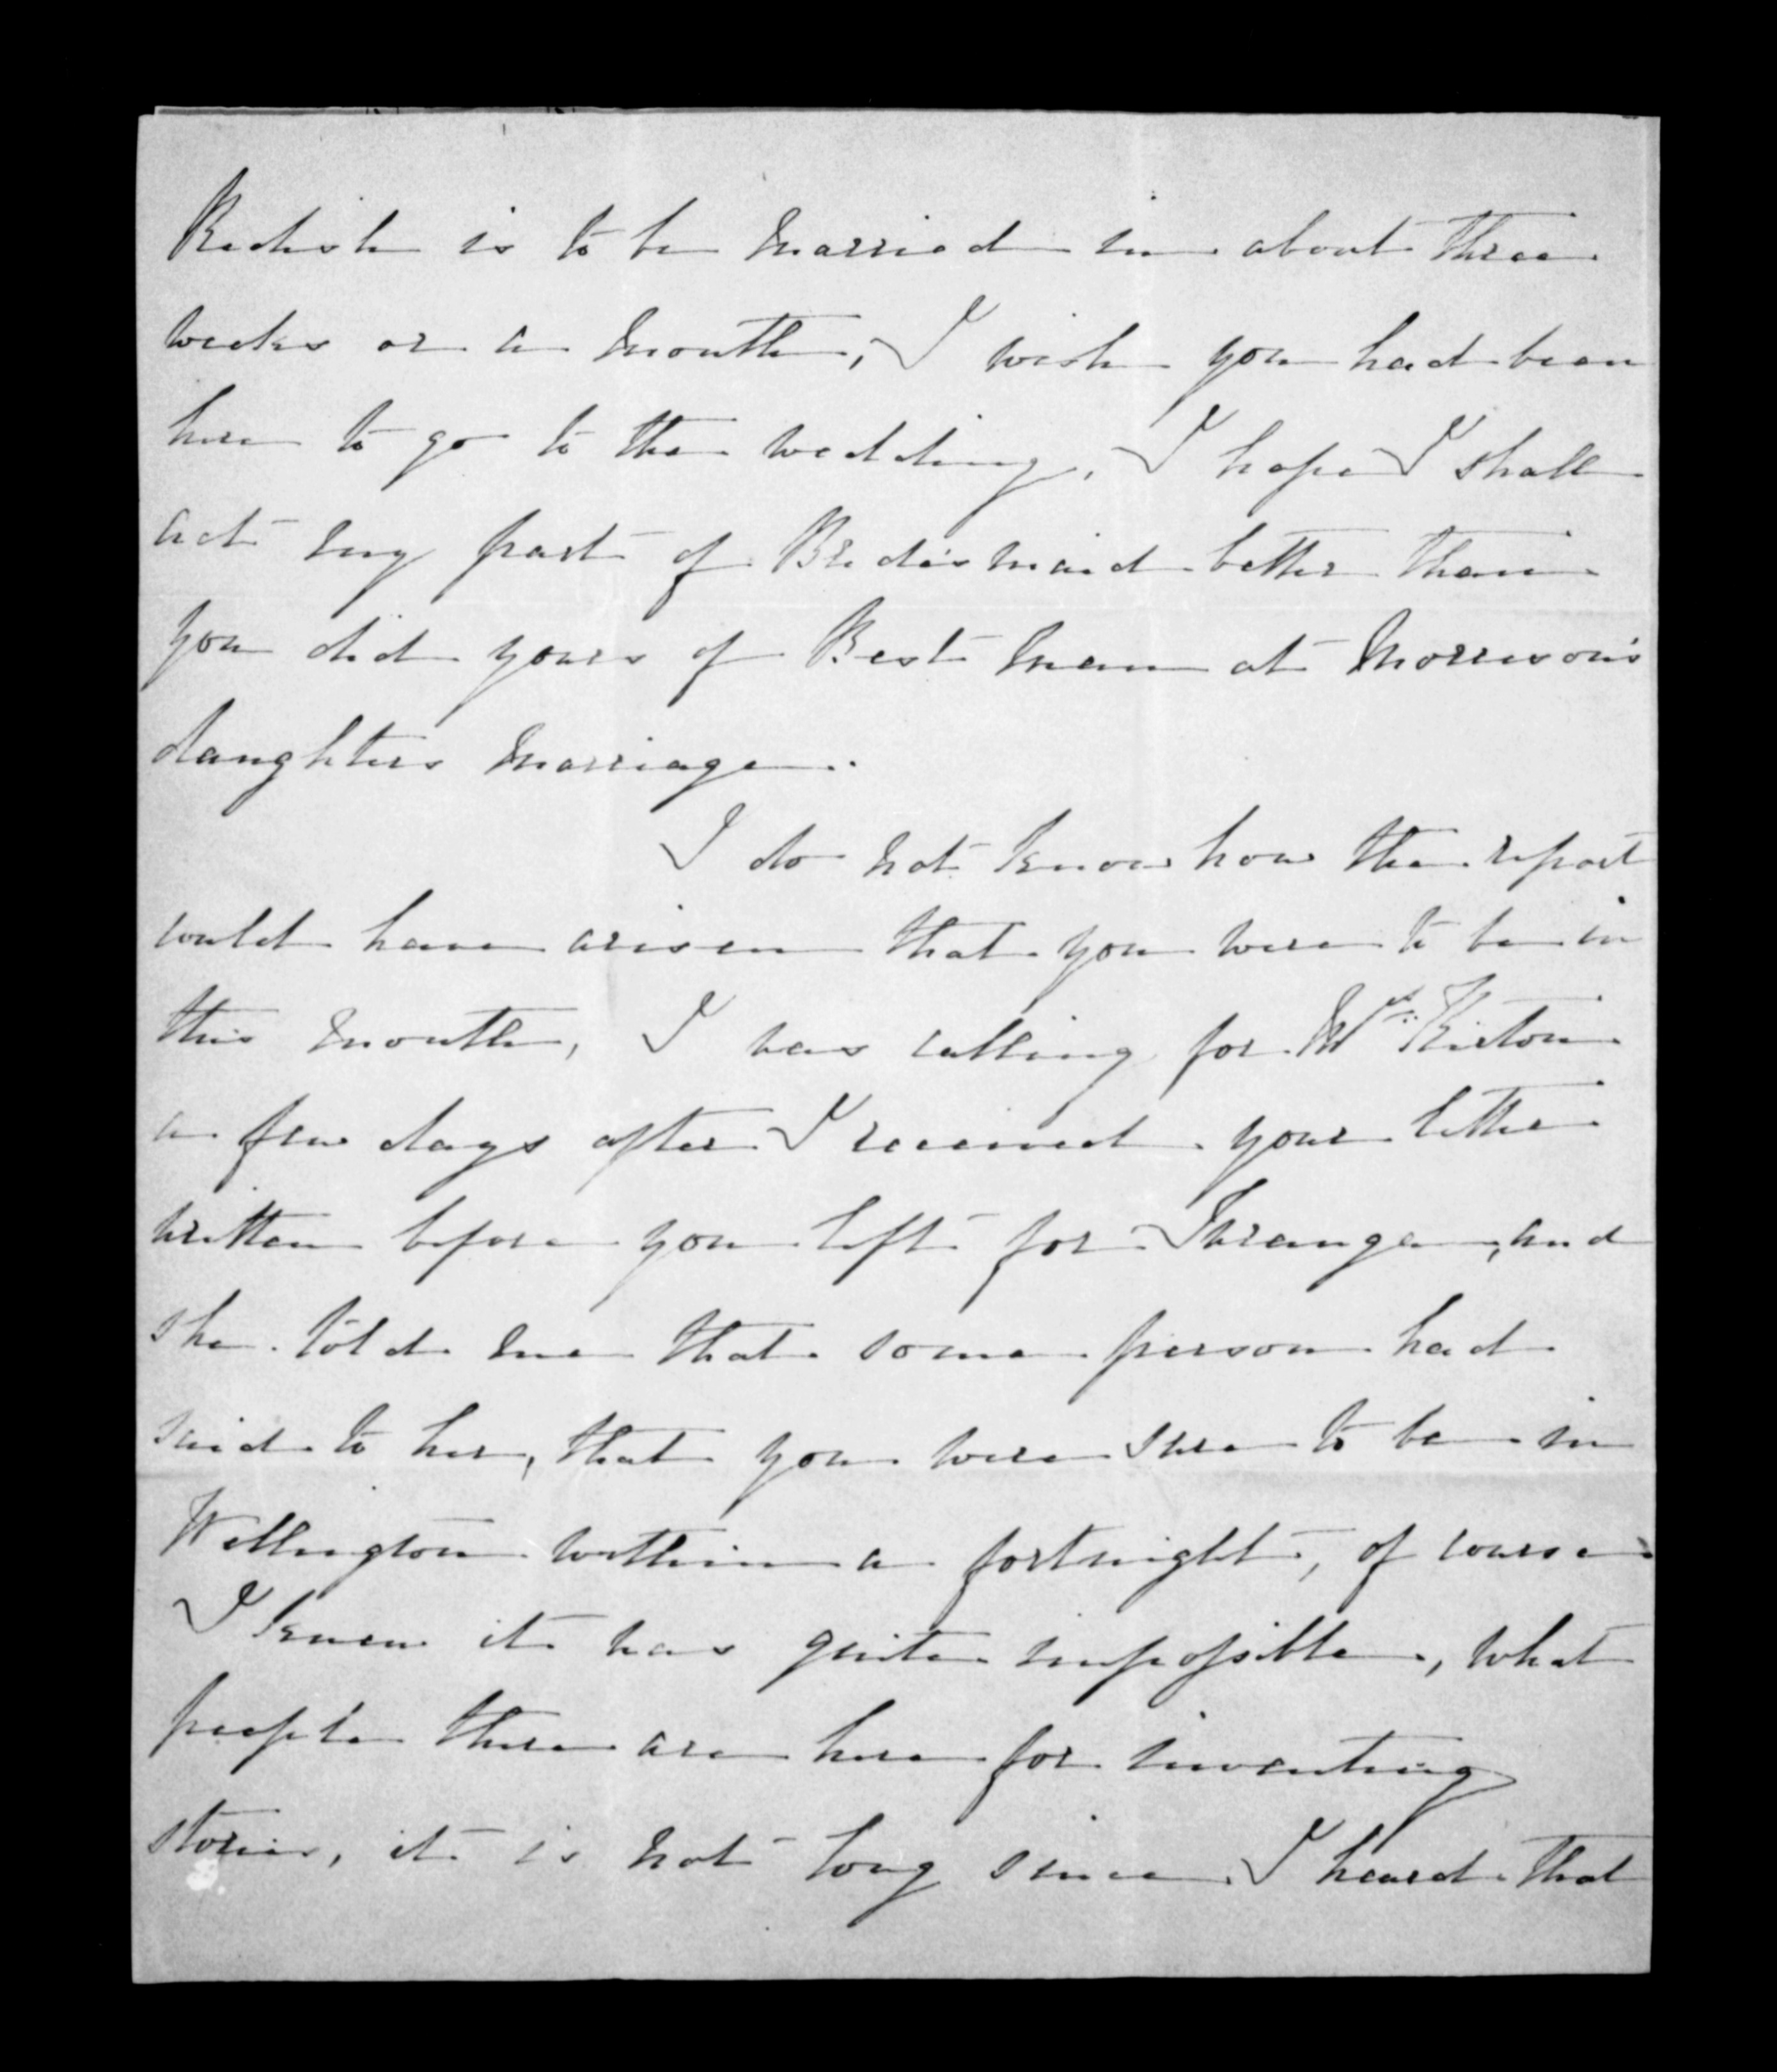 is to be married in about three
weeks or a month, I wish you had been
here to go to the wedding. I hope I shall
act my part of Bridesmaid better than
you did yours of Best man at Morrison's
daughters marriage.
I do not know how the report
could have arisen that you were to be in
this month, I was calling for Mrs
a few days after I received your letter
written before you left for Turanga, and
she told me that some person had
said to her, that you were sure to be in
Wellington within a fortnight, of course
I knew it was quite impossible, what
people there are here for inventing
stories, it is not long since I heard that